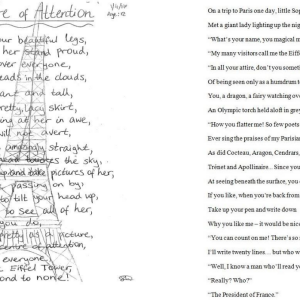 re of Attention
our beautiful legs,
her stand proud,
over everyone,
eads in the clouds,
ant and talk,
pretty lacy skirt,
ing at her in awe,
will not avert,
straight,
the sky.
and take pictures of her,
passing on by;
to tilt your head up,
so see all of her,
you do,
pretty as a picture,
centre of attention,
everyone
Eiffel Tower,
ond to none!
On a trip to Paris one day, little So
Met a giant lady lighting up the nig
"What's your name, you magical m
"My many visitors call me the Eiffe
"In all your attire, don't you somet
Of being seen only as a humdrum t
You, a dragon, a fairy watching ove
An Olympic torch held aloft in grey
"How you flatter me! So few poets
Ever sing the praises of my Parisia
As did Cocteau, Aragon, Cendrars,
Trénet and Apollinaire... Since you
At seeing beneath the surface, you c
If you like, when you're back from
Take up your pen and write down
Why you like me – it would be nice
"You can count on me! There's so m
I'll write twenty lines... but who w
"Well, I know a man who'll read yo
"Really? Who?"
"The President of France."